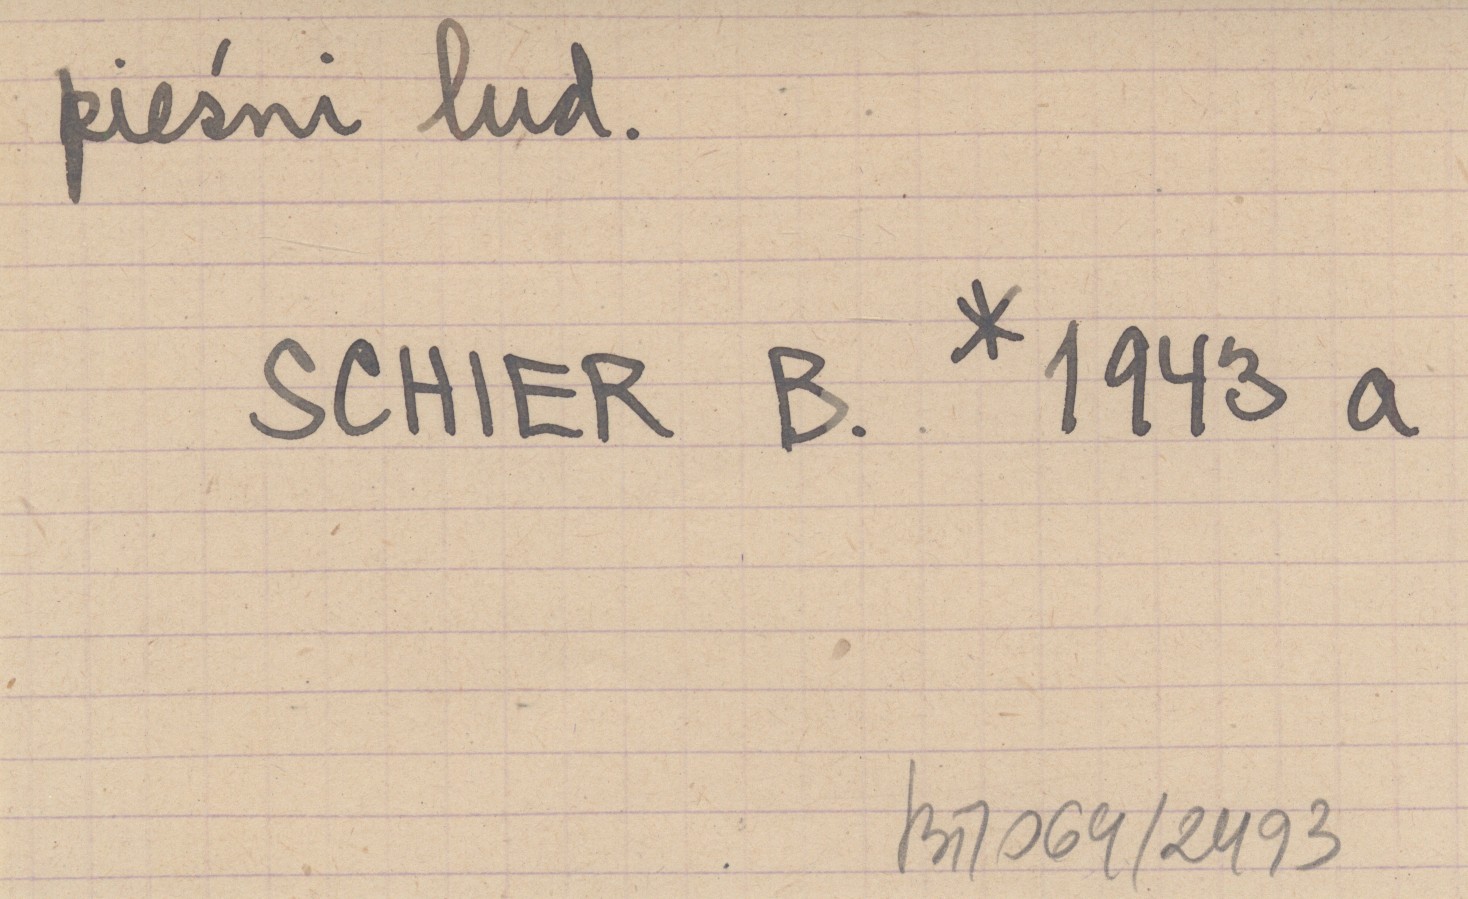 pieśni lud.
SCHIER B. * 1943 a
/2493